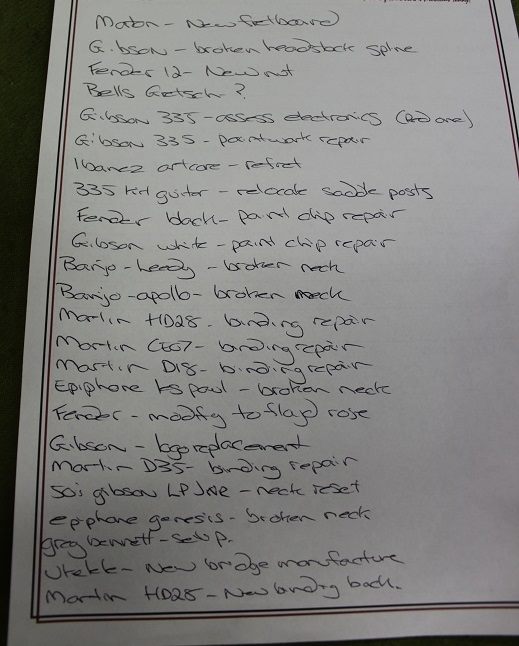 Maton - New fretboard
Gibson - broken headstock spline
Fender 12 - New nut
Bells Gretsch ?
Gibson 335 - assess electronics (Red one)
Gibson 335 - paintwork repair
Ibanez artcore - refret
335 Kit guitar - relocate saddle posts
Fender black - paint chip repair
Gibson white - paint chip repair
Banjo - heady - broken neck
Banjo - apollo - broken neck
Martin HD28 - binding repair
Martin CEO7 - binding repair
Martin D18 - binding repair
Epiphone les paul - broken neck
Fender - modify to floyd rose
Gibson - logo replacement
Martin D35 - binding repair
Gibson LP - neck reset
epiphone genesis - broken neck
greg bennett - set up.
New bridge manufacture
Martin HD28 - New binding back.